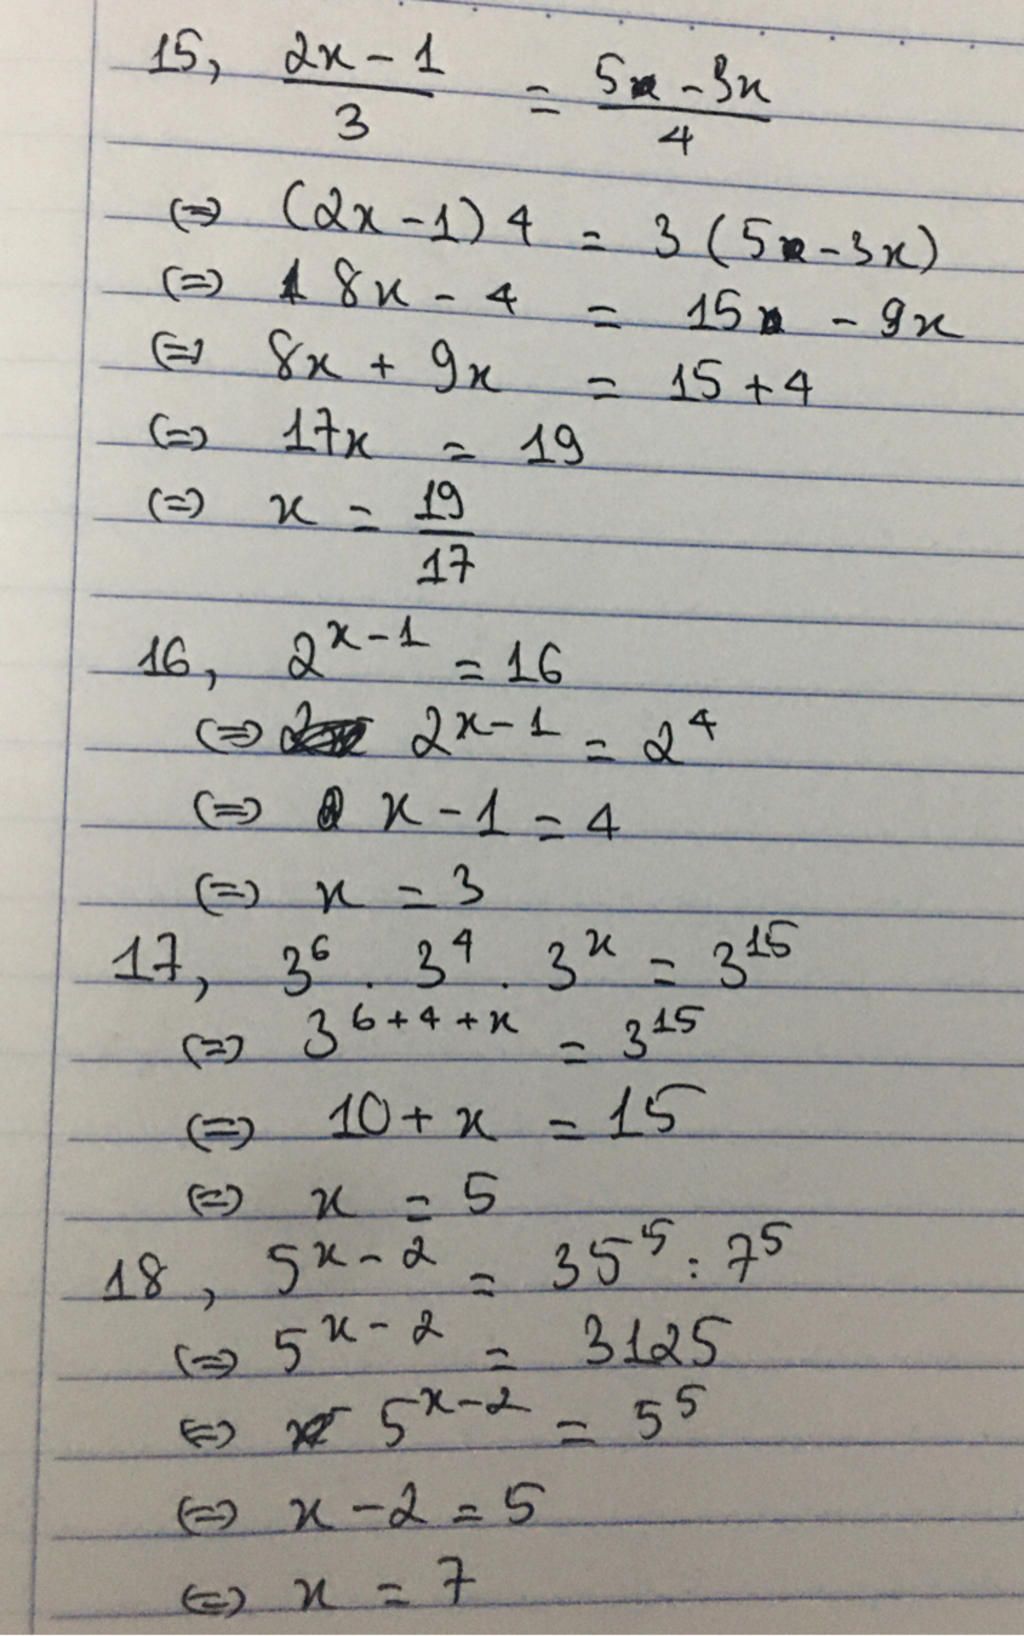 15, (2x - 1)/3 = (5 - 3x)/4
(=) (2x - 1) 4 = 3 (5 - 3x)
(=) 8x - 4 = 15 - 9x
(=) 8x + 9x = 15 + 4
(=) 17x = 19
(=) x = 19/17
16, 2^(x - 1) = 16
(=) 2^(x - 1) = 2^4
(=) x - 1 = 4
(=) x = 3
17, 3^6 . 3^4 . 3^x = 3^15
(=) 3^(6 + 4 + x) = 3^15
(=) 10 + x = 15
(=) x = 5
18, 5^(x - 2) = 35^5 : 7^5
(=) 5^(x - 2) = 3125
(=) 5^(x - 2) = 5^5
(=) x - 2 = 5
(=) x = 7